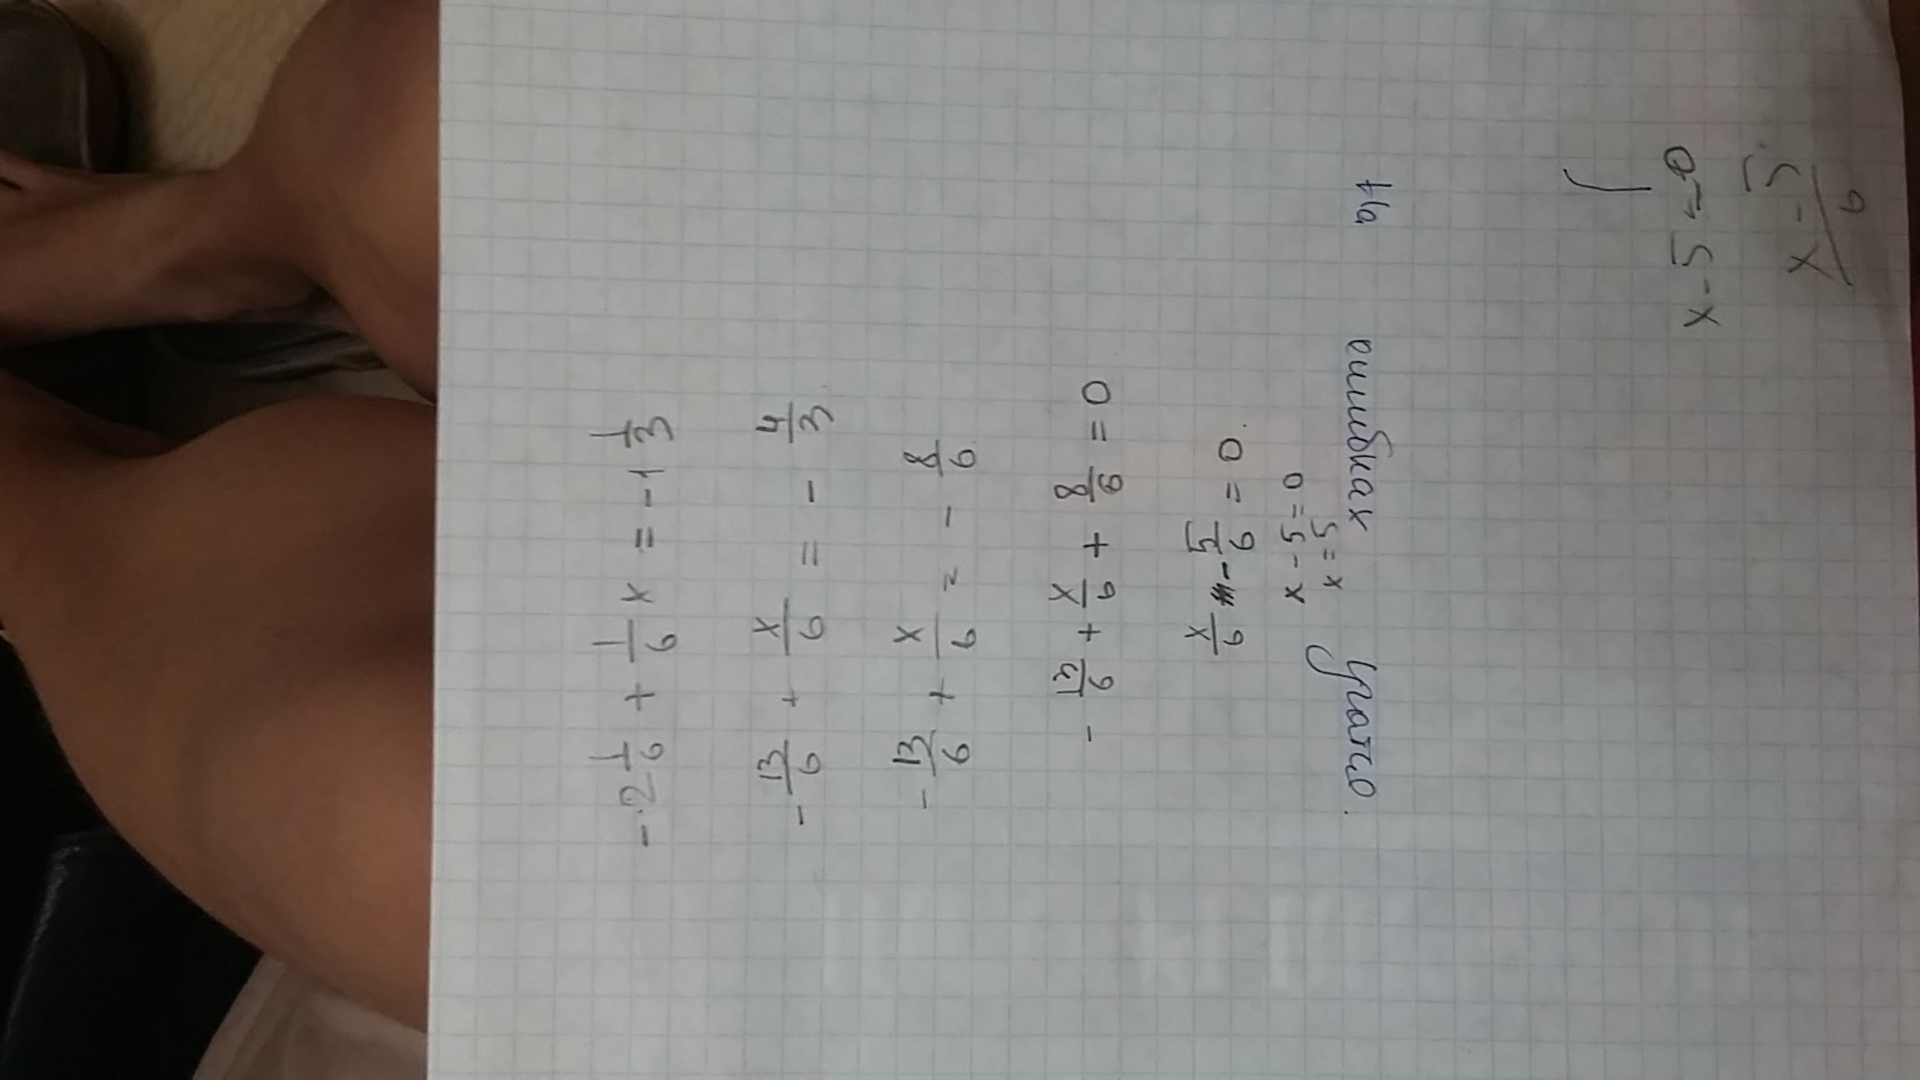 -2 1/6 + 1/6 x = -1 1/3
-13/6 + x/6 = - 4/3
-13/6 + x/6 = - 8/6
- 13/6 + x/6 + 8/6 = 0
x/6 - 5/6 = 0.
x - 5 = 0
x = 5
ошибках на
x - 5 = 0
x - 5 / 6